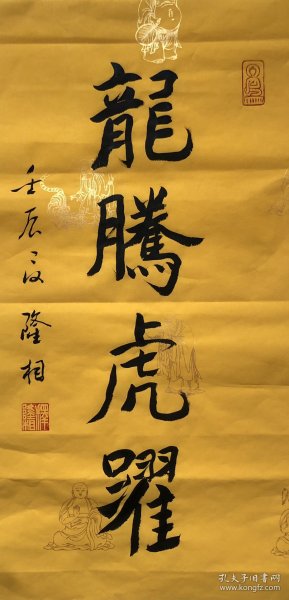 龍騰虎躍
壬辰夏 隆相
孔夫子旧书网
www.kongfz.com